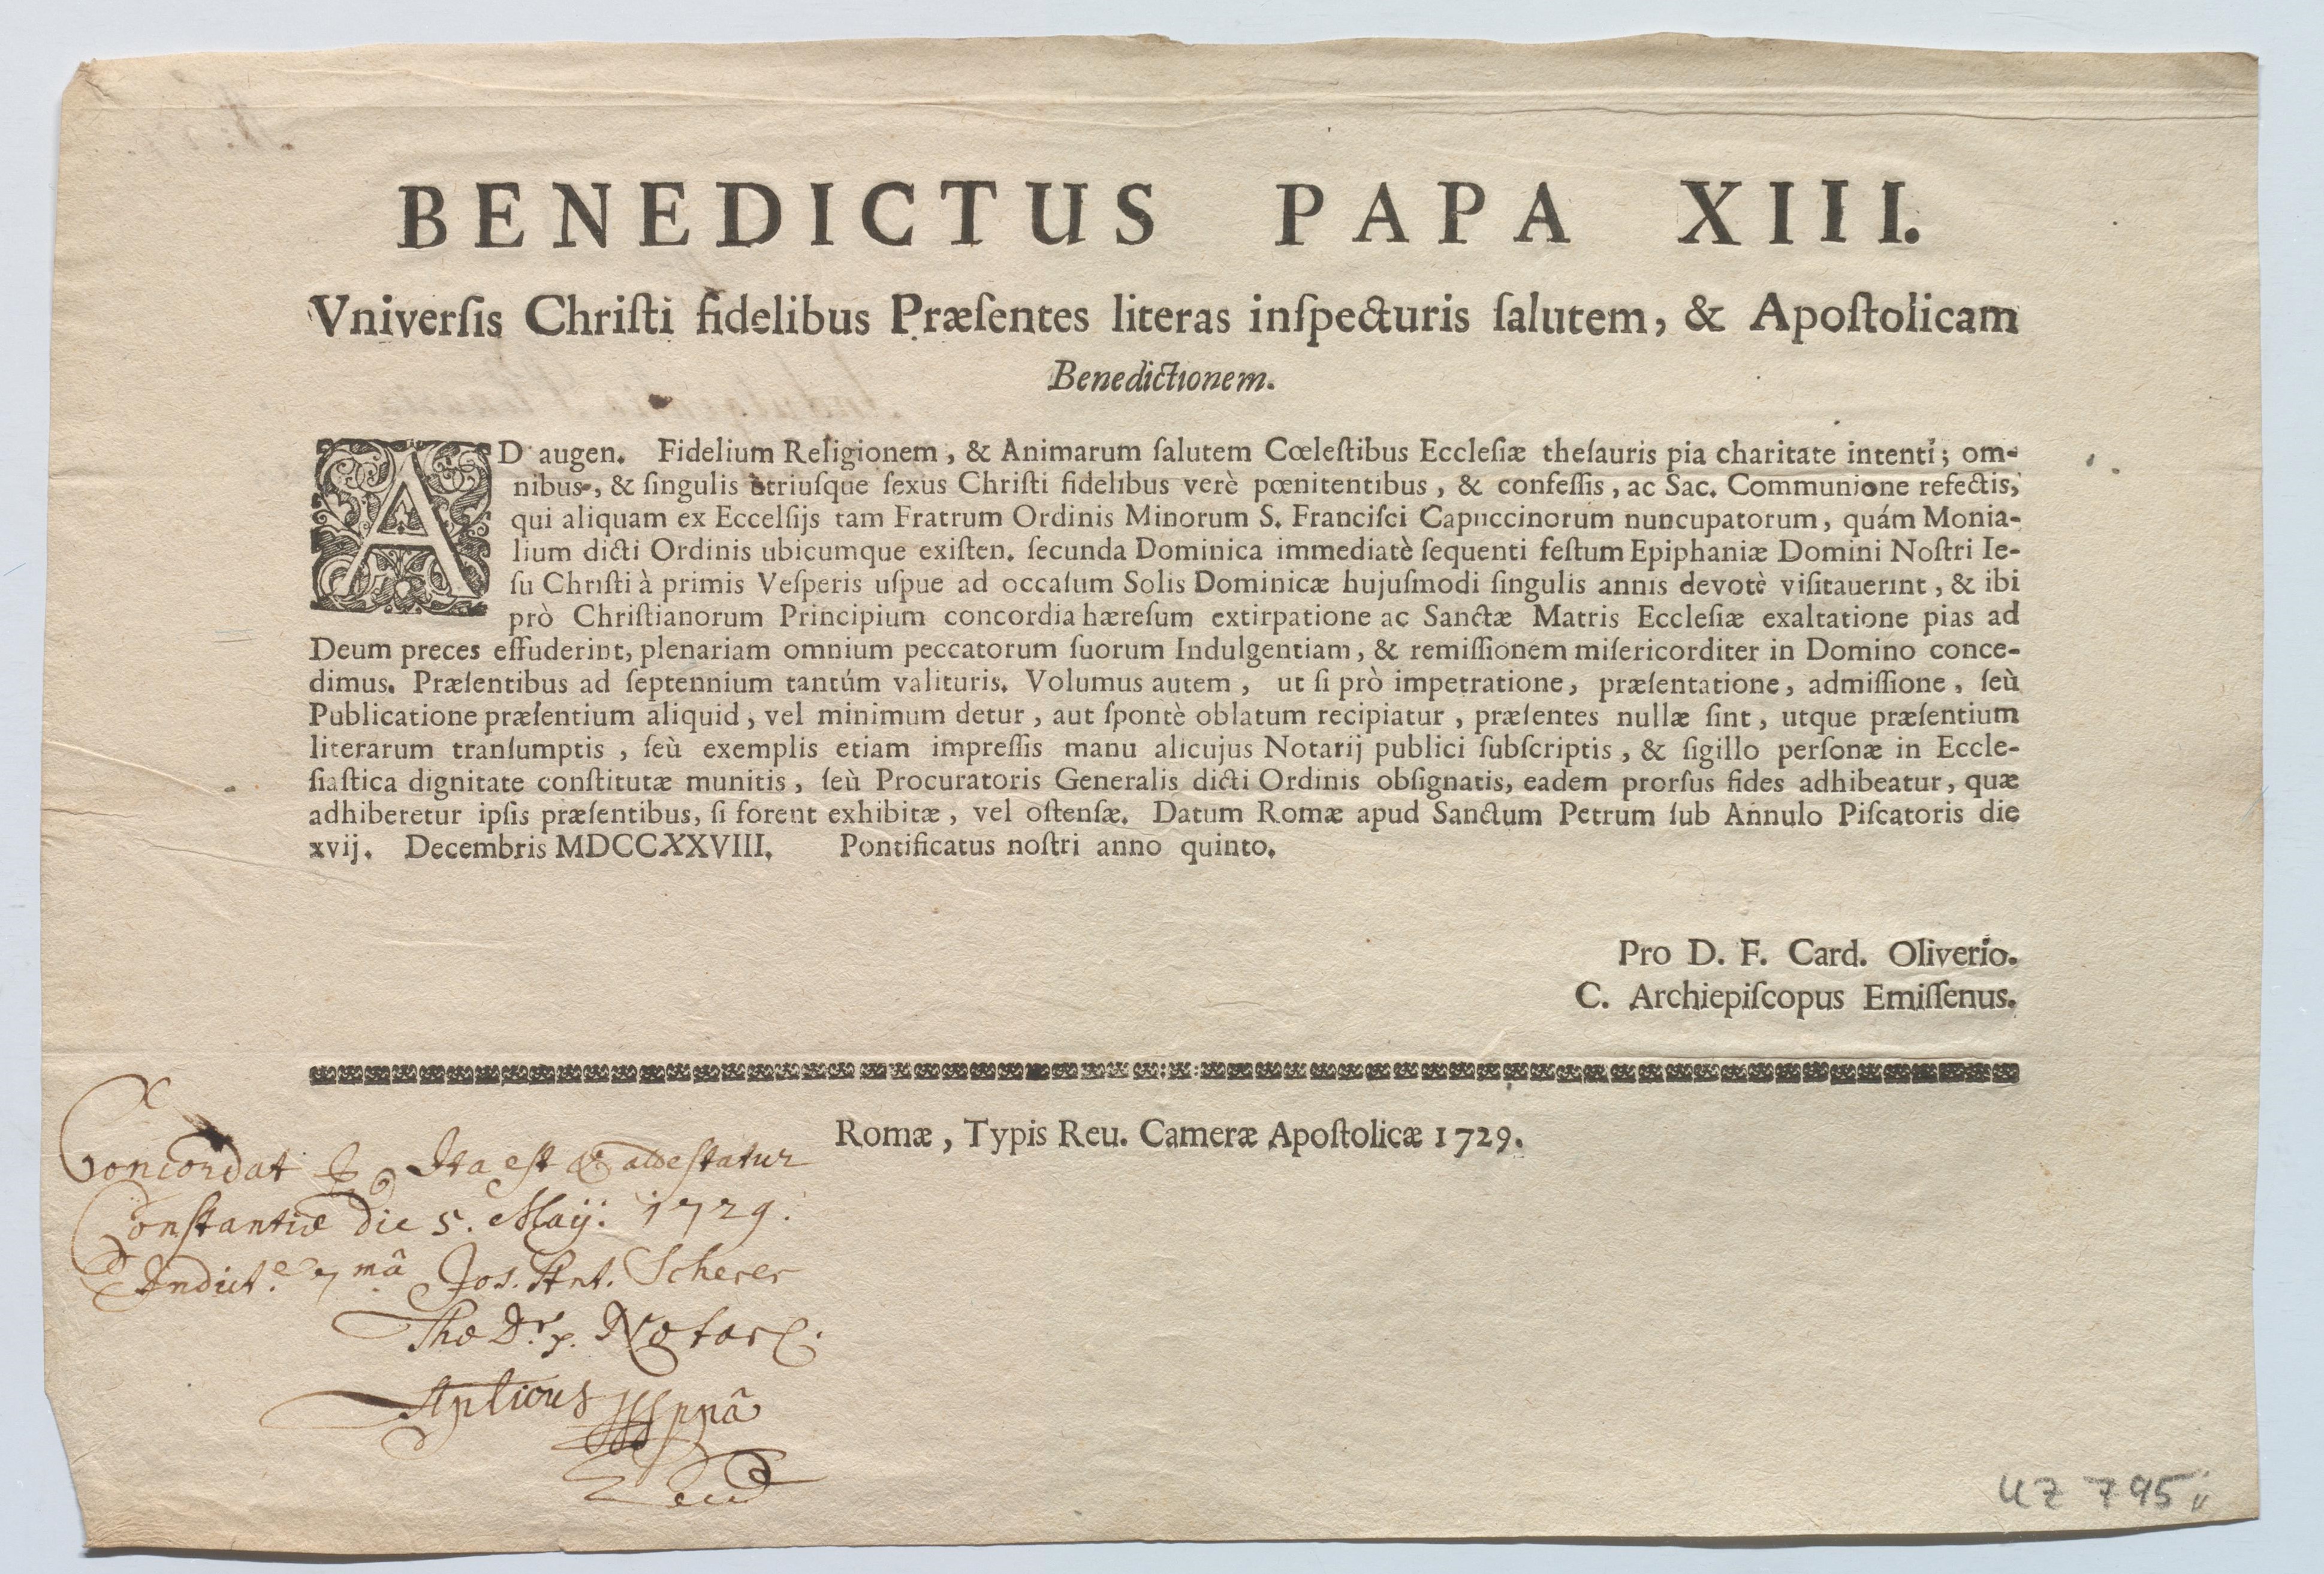 BENEDICTUS PAPA XIII.
Vniverſis Chriſti fidelibus Præſentes literas inſpecturis ſalutem, & Apoſtolicam
Benedictionem.
AD augen. Fidelium Religionem, & Animarum ſalutem Cœleſtibus Eccleſiæ theſauris pia charitate intenti; om-
nibus, & ſingulis utriuſque ſexus Chriſti fidelibus verè pœnitentibus, & confeſſis, ac Sac. Communione refectis,
qui aliquam ex Eccelſijs tam Fratrum Ordinis Minorum S. Franciſci Capuccinorum nuncupatorum, quám Monia-
lium dicti Ordinis ubicumque exiſten. ſecunda Dominica immediatè ſequenti feſtum Epiphaniæ Domini Noſtri Ie-
ſu Chriſti à primis Veſperis uſpue ad occaſum Solis Dominicæ hujuſmodi ſingulis annis devotè viſitauerint, & ibi
prò Chriſtianorum Principium concordia hæreſum extirpatione ac Sanctæ Matris Eccleſiæ exaltatione pias ad
Deum preces effuderint, plenariam omnium peccatorum ſuorum Indulgentiam, & remiſſionem miſericorditer in Domino conce-
dimus. Præſentibus ad ſeptennium tantúm valituris. Volumus autem, ut ſi prò impetratione, præſentatione, admiſſione, ſeù
Publicatione præſentium aliquid, vel minimum detur, aut ſpontè oblatum recipiatur, præſentes nullæ ſint, utque præſentium
literarum tranſumptis, ſeù exemplis etiam impreſſis manu alicujus Notarij publici ſubſcriptis, & ſigillo perſonæ in Eccle-
ſiaſtica dignitate conſtitutæ munitis, ſeù Procuratoris Generalis dicti Ordinis obſignatis, eadem prorſus fides adhibeatur, quæ
adhiberetur ipſis præſentibus, ſi forent exhibitæ, vel oſtenſæ. Datum Romæ apud Sanctum Petrum ſub Annulo Piſcatoris die
xvij. Decembris MDCCXXVIII. Pontificatus noſtri anno quinto.
Pro D. F. Card. Oliverio.
C. Archiepiſcopus Emiſſenus.
Romæ, Typis Reu. Cameræ Apoſtolicæ 1729.
Concordat Ita est & attestatur
Constantiæ die 5. Maij: 1729.
Indict.e 7.mâ Jos. Ant. Scherer
Notar
Aplicus
UZ 795